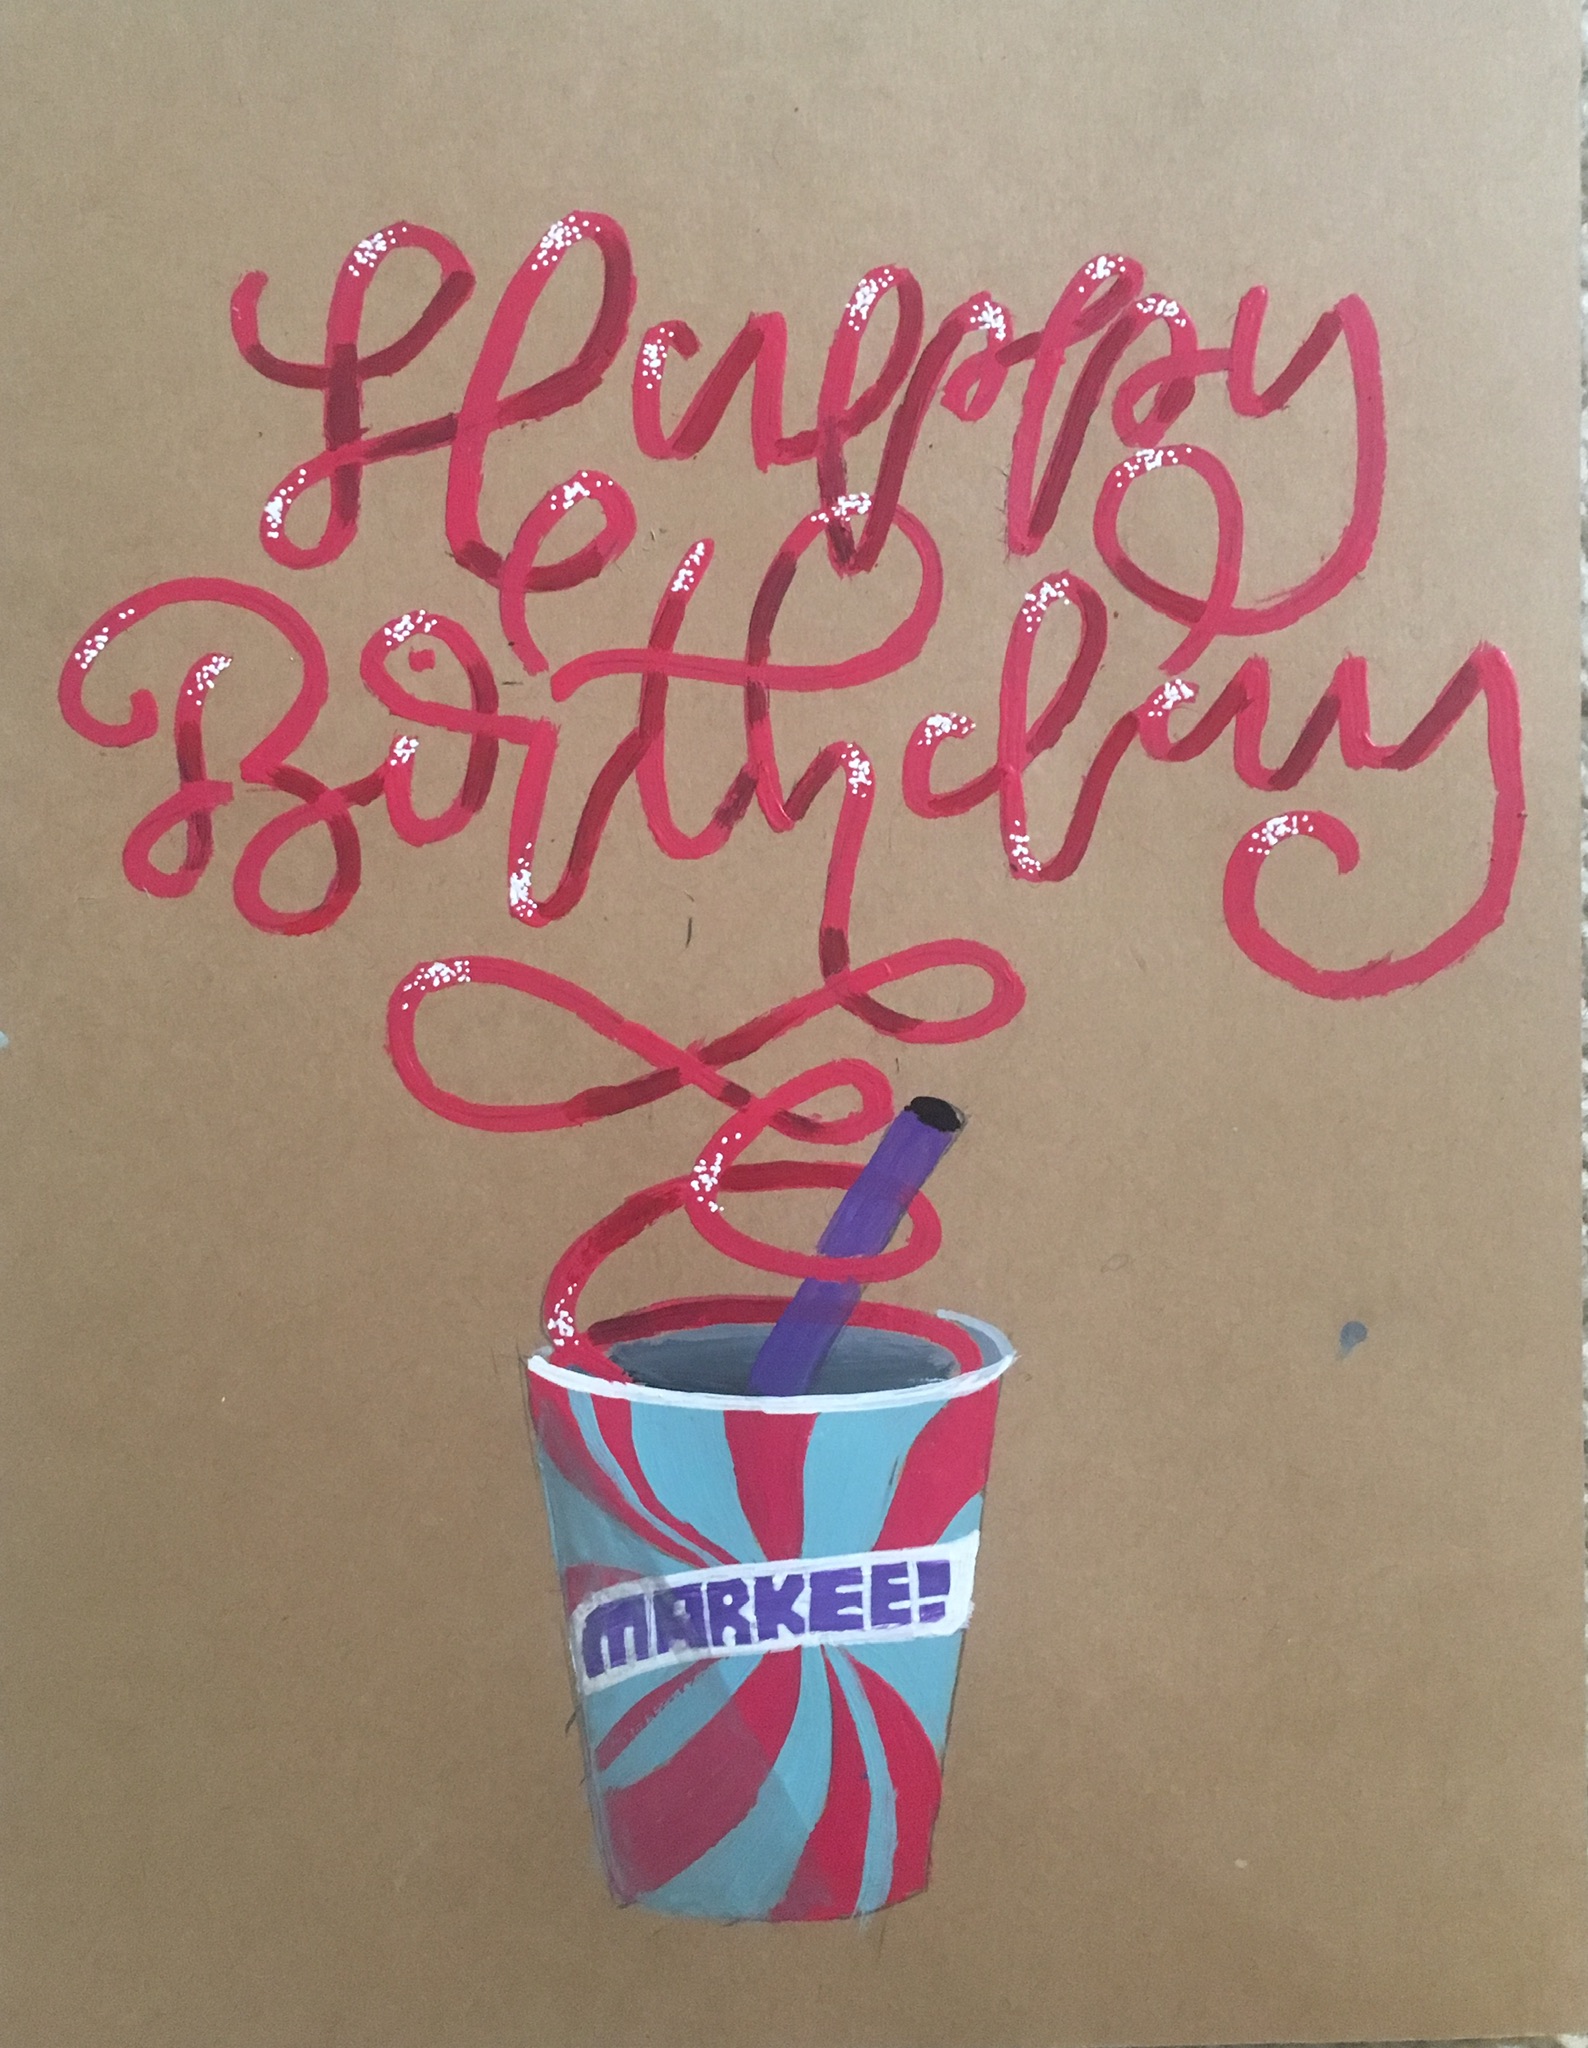 Happy
Birthday
MARKEE!